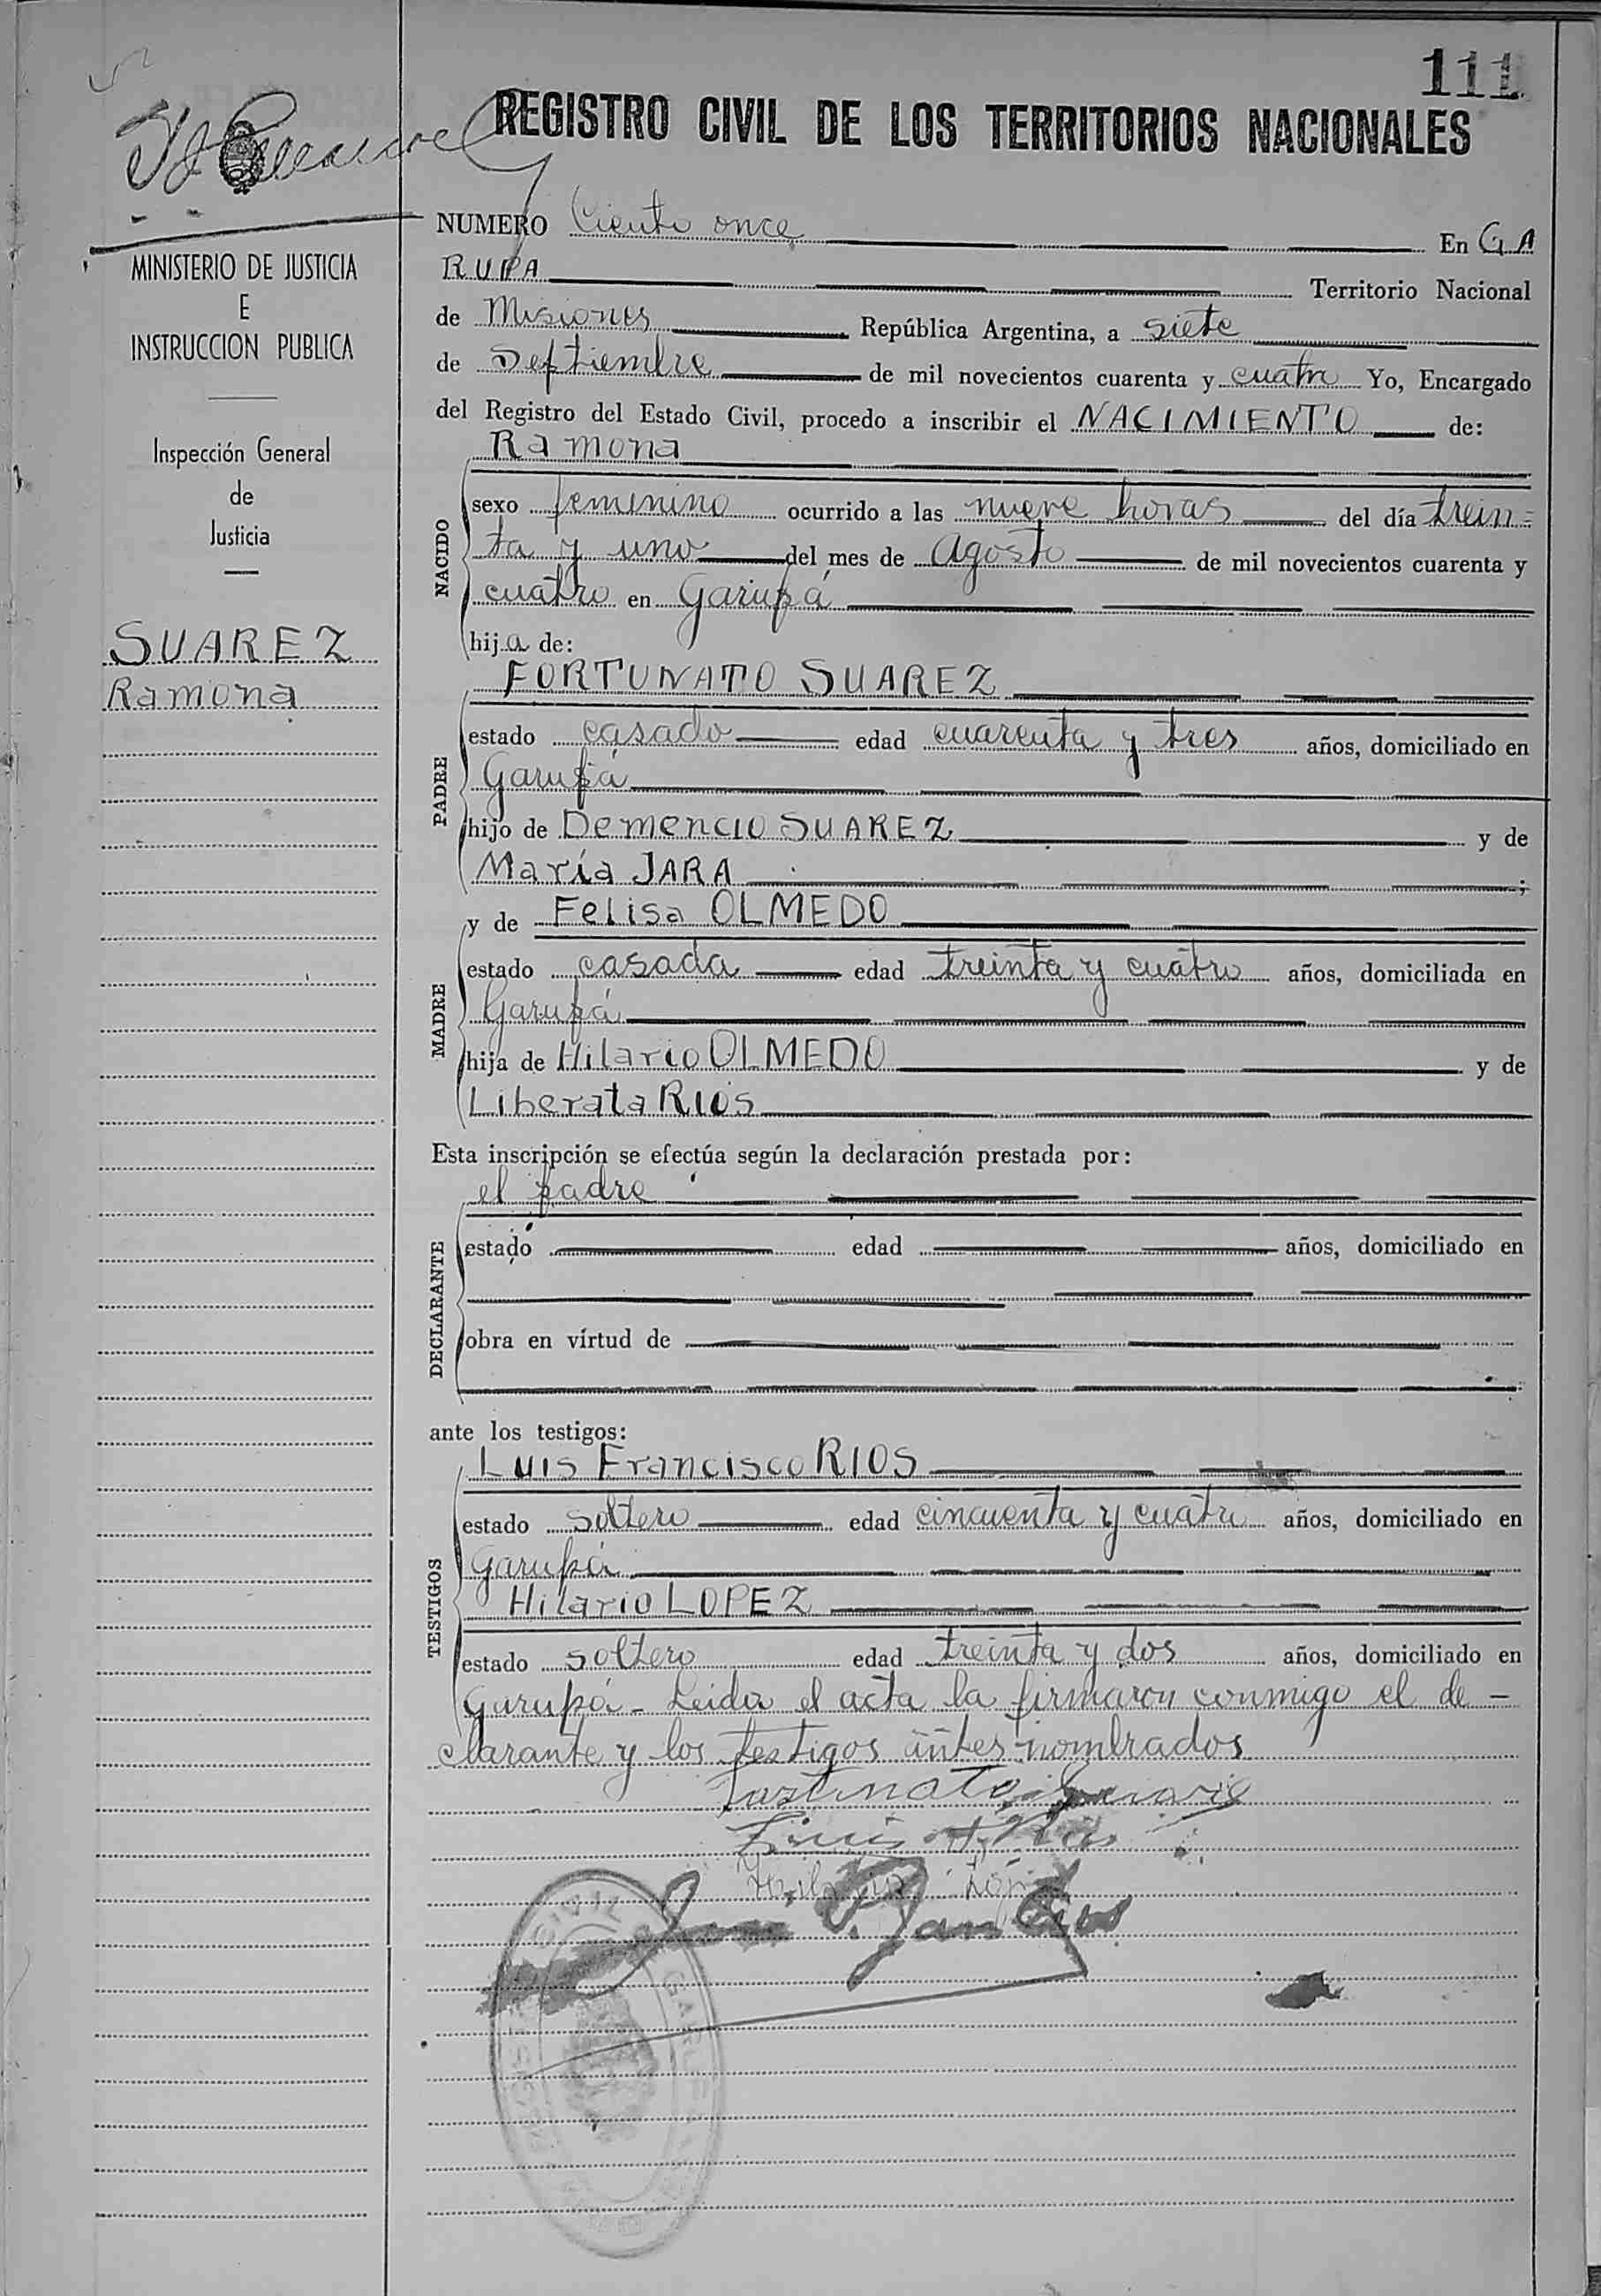 111
REGISTRO CIVIL DE LOS TERRITORIOS NACIONALES
NUMERO Ciento once En GA
RUPA Territorio Nacional
de Misiones República Argentina, a siete
de Septiembre de mil novecientos cuarenta y cuatro Yo, Encargado
del Registro del Estado Civil, procedo a inscribir el NACIMIENTO de:
MINISTERIO DE JUSTICIA
E
INSTRUCCION PUBLICA
Inspección General
de
Justicia
SUAREZ
Ramona
NACIDO
Ramona
sexo femenino ocurrido a las nueve horas del día trein=
ta y uno del mes de Agosto de mil novecientos cuarenta y
cuatro en Garupá
hija de:
PADRE
FORTUNATO SUAREZ
estado casado edad cuarenta y tres años, domiciliado en
Garupá
hijo de Demencio SUAREZ y de
María JARA ;
MADRE
y de Felisa OLMEDO
estado casada edad treinta y cuatro años, domiciliada en
Garupá
hija de Hilario OLMEDO y de
Liberata RIOS
Esta inscripción se efectúa según la declaración prestada por:
DECLARANTE
el padre
estado edad años, domiciliado en
obra en vírtud de
ante los testigos:
TESTIGOS
Luis Francisco RIOS
estado soltero edad cincuenta y cuatro años, domiciliado en
Garupá
Hilario LOPEZ
estado soltero edad treinta y dos años, domiciliado en
Garupá - Leida el acta la firmaron conmigo el de -
clarante y los testigos antes nombrados
Fortunato Suarez
Luis F. Rios
Hilario López